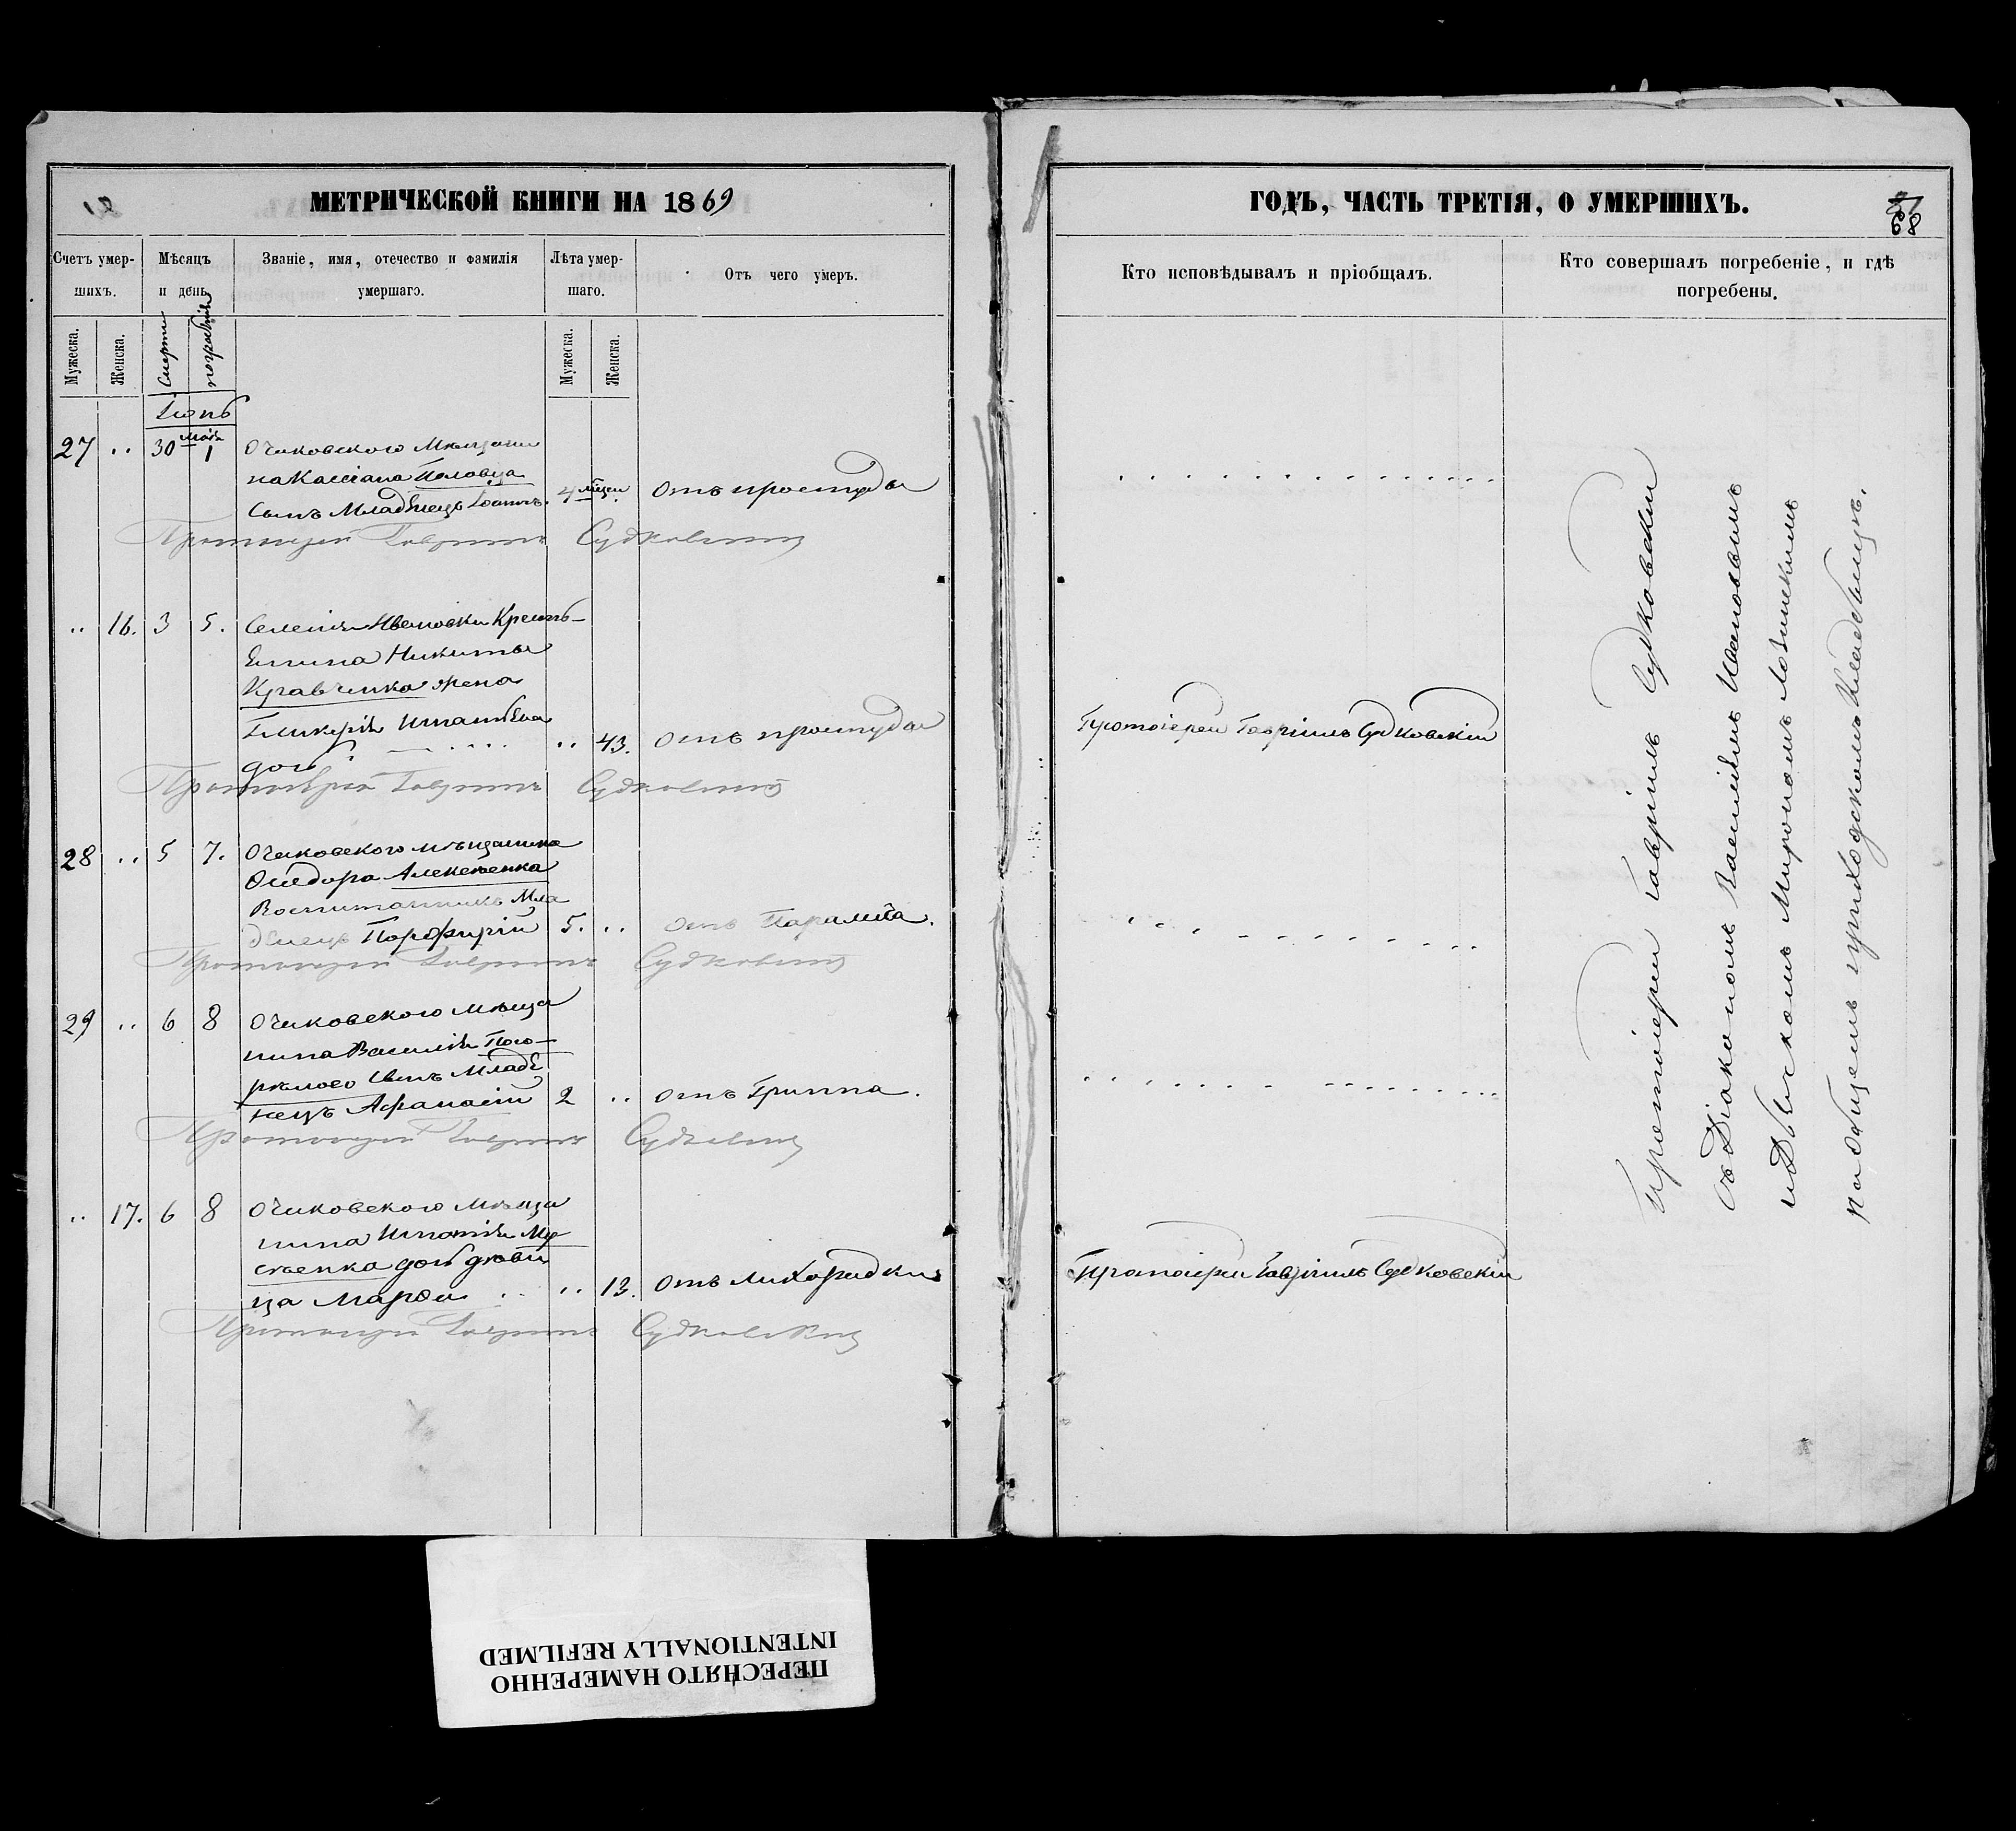 МЕТРИЧЕСКОЙ КНИГИ НА 1869
Счетъ умер-
шихъ.
Мѣсяцъ
и день
Званіе, имя, отечество и фамилія
умершаго.
Лѣта умер-
шаго.
Отъ чего умеръ.
Мужеска.
Женска.
Смерти
погребенія
Мужеска.
Женска.
Іюнь
27 .. 30 Мая 1 Очаковскаго Мѣщани
на Кассіана Половца
Сынъ Младенецъ Іоаннъ. 4 мѣсец. Отъ простуды
Протоіерей Гавріилъ Судковскій
.. 16. 3 5. Селенія Ивановки Кресть-
янина Никиты
Кравченка жена
Гликерія Игнатьева
дочь .. 43. Отъ простуды
Протоіерей Гавріилъ Судковскій
28 .. 5 7. Очаковскаго мѣщанина
Ѳеодора Алексѣенка
Воспитанникъ Мла
денецъ Порфирій 5. .. Отъ Паралича.
Протоіерей Гавріилъ Судковскій
29 .. 6 8 Очаковскаго мѣща
нина Василія Пого-
рѣлого Сынъ Младе
нецъ Афанасій 2 .. Отъ Гриппа.
Протоіерей Гавріилъ Судковскій
.. 17. 6 8 Очаковскаго мѣща
нина Игнатія
дочь дѣви
ца Марѳа .. 13. Отъ Лихорадки
Протоіерей Гавріилъ Судковскій
ГОДЪ, ЧАСТЬ ТРЕТІЯ, О УМЕРШИХЪ.
68
Кто исповѣдывалъ и пріобщалъ.
Кто совершалъ погребеніе, и гдѣ
погребены.
Протоіерей Гавріилъ Судковскій
Протоіерей Гавріилъ Судковскій
Протоіерей Гавріилъ Судковскій
съ Діакономъ Василіемъ
и Дьячкомъ Мирономъ Ложинскимъ
на общемъ приходскомъ кладбищѣ.
ПЕРЕСНЯТО НАМЕРЕННО
INTENTIONALLY REFILMED